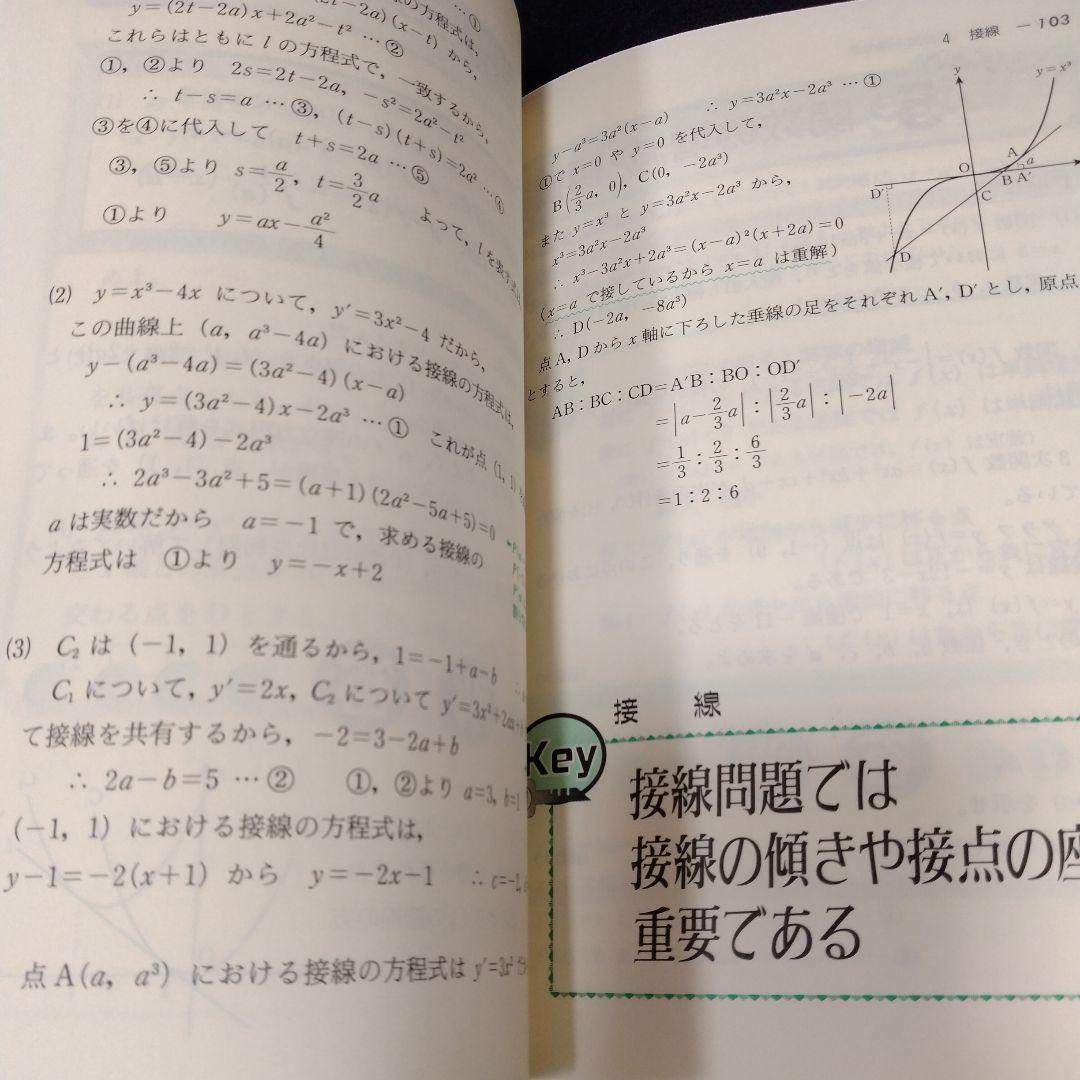 y=(2t-2a)x+2a²-t² … ②
これらはともに l の方程式で，一致するから，
①，②より 2s=2t-2a，-s²=2a²-t²
∴ t-s=a … ③，(t-s)(t+s)=2a² … ④
③を④に代入して t+s=2a … ⑤
③，⑤より s=a/2，t=3/2a よって，l を表す
①より y=ax-a²/4
(2) y=x³-4x について，y′=3x²-4 だから，
この曲線上 (a, a³-4a) における接線の方程式は，
y-(a³-4a)=(3a²-4)(x-a)
∴ y=(3a²-4)x-2a³ … ① これが点 (1, 1)
1=(3a²-4)-2a³
∴ 2a³-3a²+5=(a+1)(2a²-5a+5)=0
a は実数だから a=-1 で，求める接線の
方程式は ①より y=-x+2
(3) C₂ は (-1, 1) を通るから，1=-1+a-b
C₁ について，y′=2x，C₂ について y′=3x²+2ax+b
て接線を共有するから，-2=3-2a+b
∴ 2a-b=5 … ② ①，②より a=3, b=1
(-1, 1) における接線の方程式は，
y-1=-2(x+1) から y=-2x-1 ∴ c=-1
点 A(a, a³) における接線の方程式は y′=3x²
4 接線 — 103
y-a³=3a²(x-a) ∴ y=3a²x-2a³ … ①
①で x=0 や y=0 を代入して，
B(2/3a, 0)，C(0, -2a³)
また y=x³ と y=3a²x-2a³ から，
x³=3a²x-2a³
∴ x³-3a²x+2a³=(x-a)²(x+2a)=0
(x=a で接しているから x=a は重解)
∴ D(-2a, -8a³)
点 A, D から x 軸に下ろした垂線の足をそれぞれ A′, D′ とし，原点
とすると，
AB：BC：CD=A′B：BO：OD′
=|a-2/3a|：|2/3a|：|-2a|
=1/3：2/3：6/3
=1：2：6
y
y=x³
O
A
a
B A′
C
D′
D
接 線
Key
接線問題では
接線の傾きや接点の座
重要である